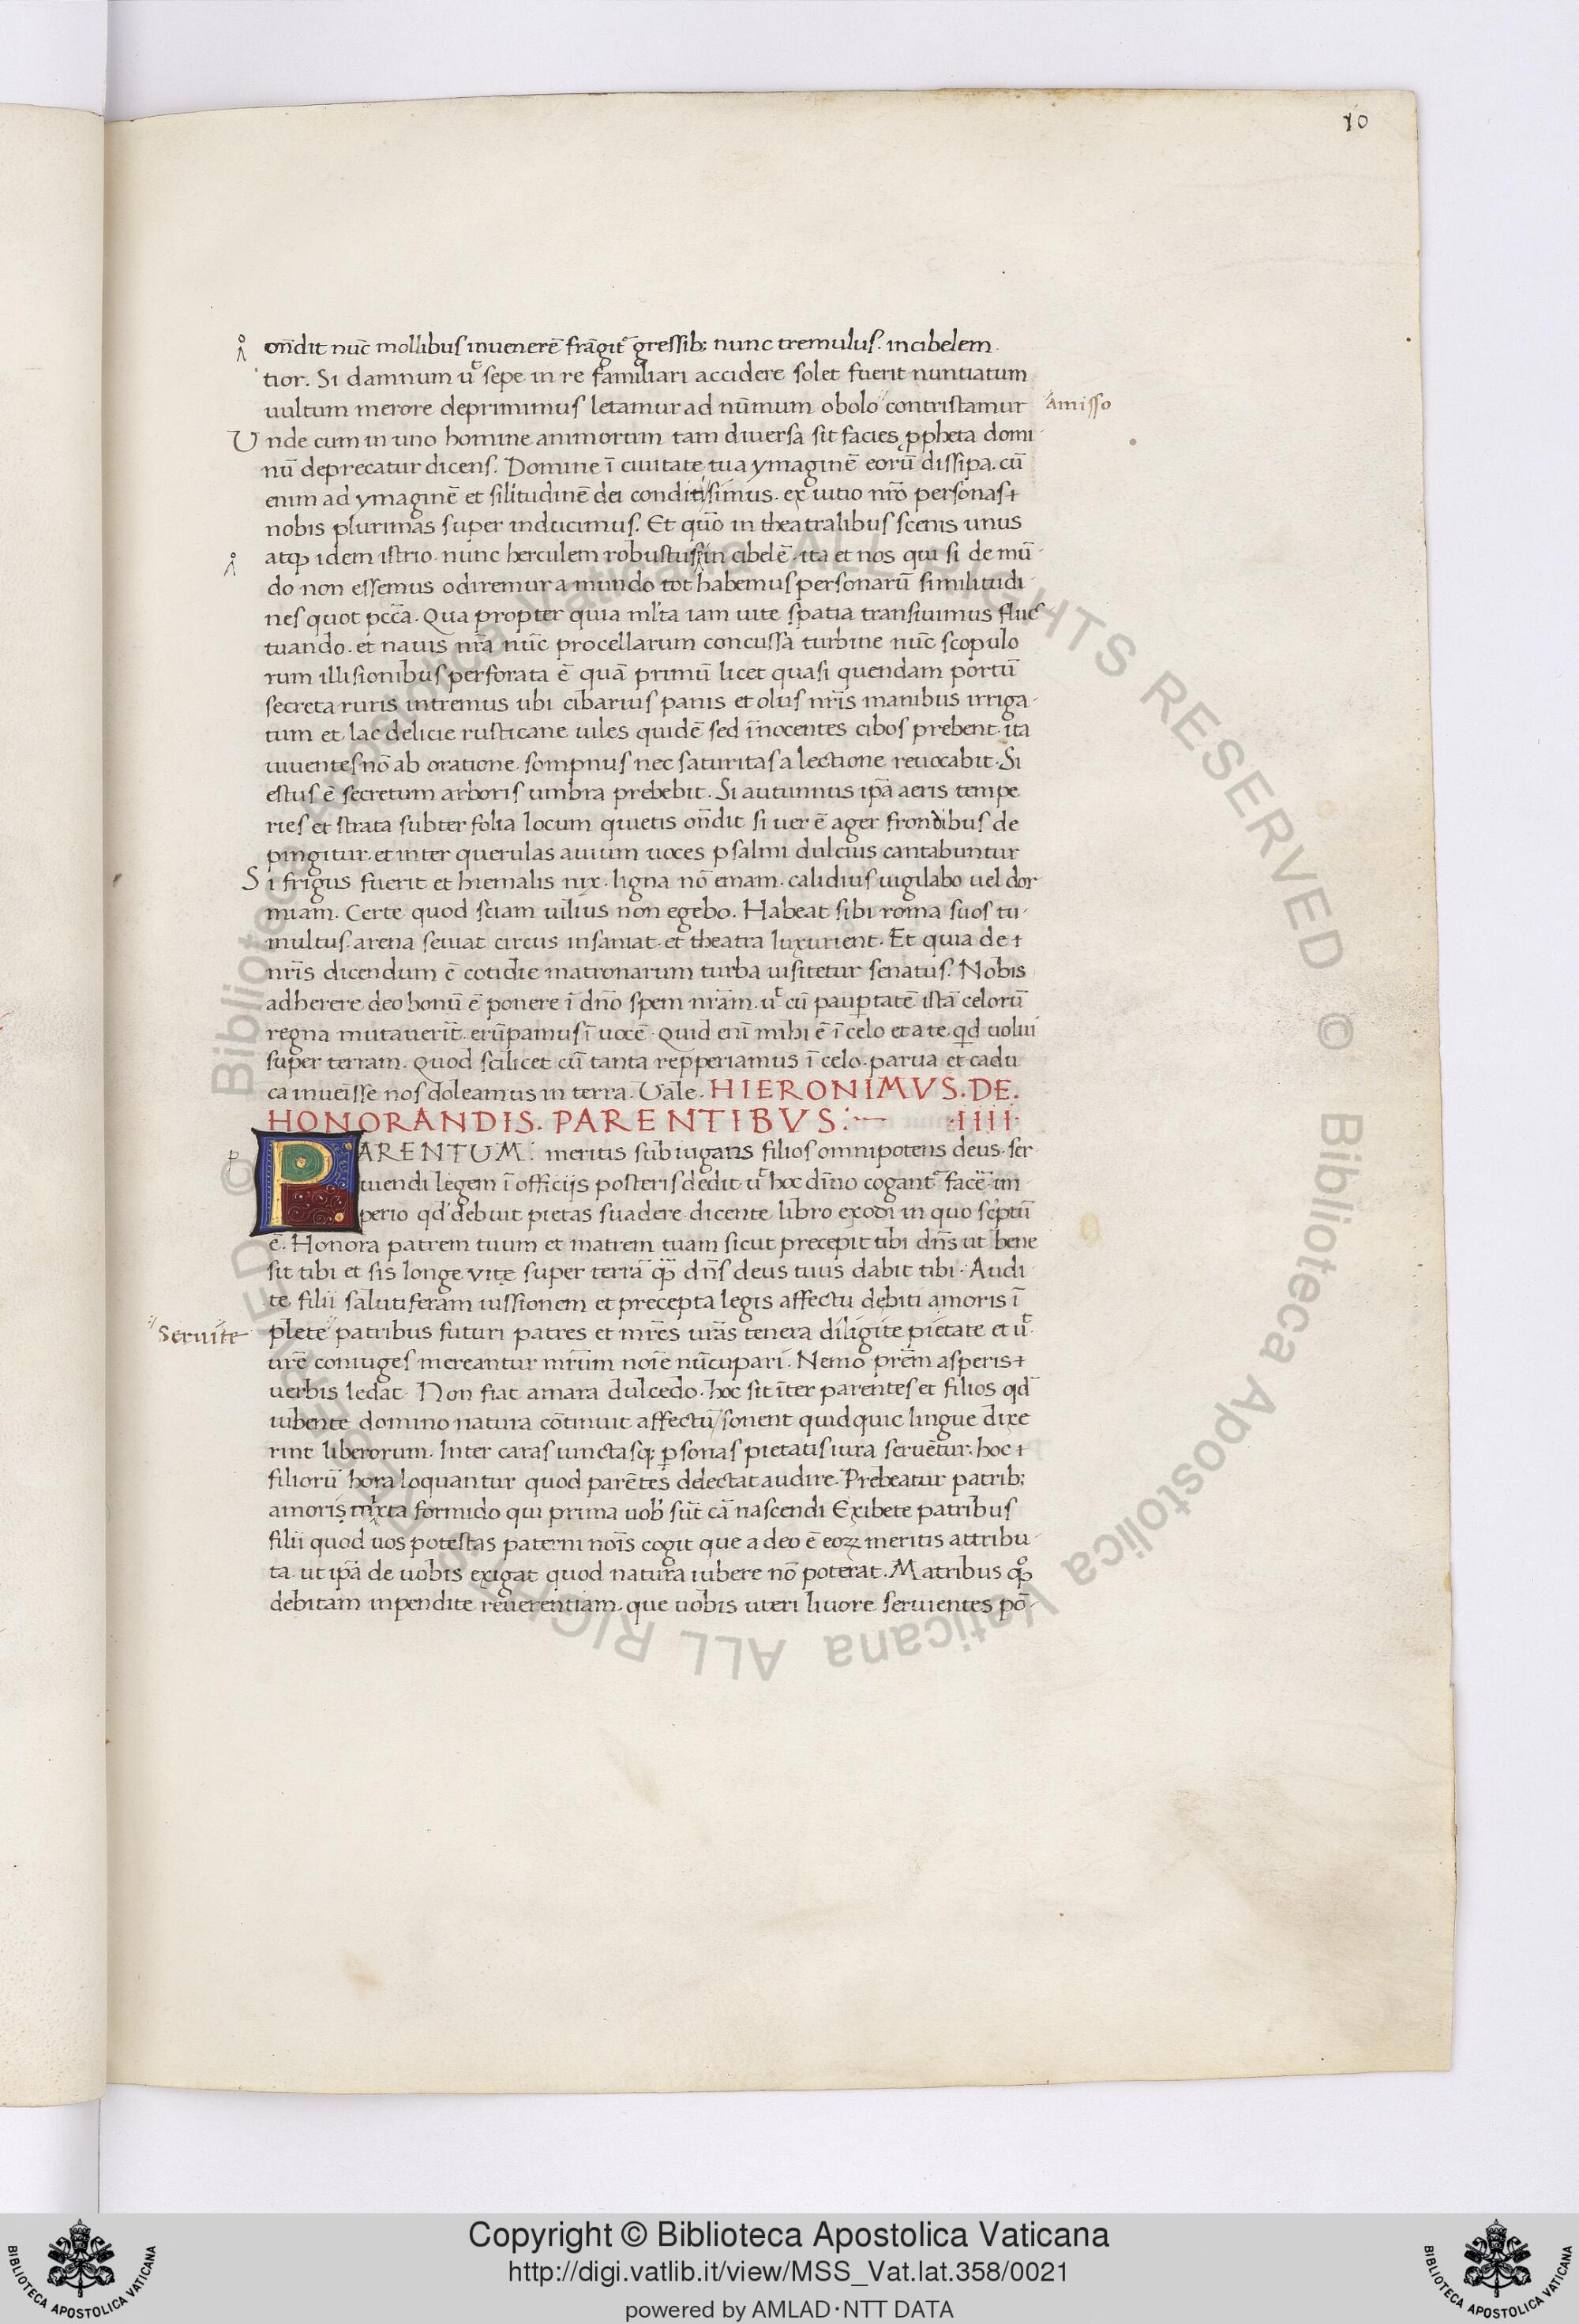 10
on̄dit nūc mollibus inuenerē frāgit᷑ gressib; nunc tremulus. incibelem
tior. Si damnum u᷑ sepe in re familiari accidere solet fuerit nuntiatum
uultum merore deprimimus letamur ad nūmum obolo contristamur amisso
Unde cum in uno homine animorum tam diuersa sit facies ꝓpheta domi
nū deprecatur dicens. Domine ī ciuitate tua ymaginē eorū dissipa. cū
enim ad ymaginē et sil'itudinē dei conditi simus. ex uitio nr̄o personas
nobis plurimas super inducimus. Et quō in theatralibus scenis unus
atqꝫ idem istrio. nunc herculem robustus in cibelē. ita et nos qui si de mū
do non essemus odiremur a mundo tot habemus personarū similitudi
nes quot pcc̄a. Qua propter quia ml'ta iam uite spatia transiuimus fluc
tuando. et nauis nr̄a nūc procellarum concussa turbine nūc scopulo
rum illisionibus perforata ē quā primū licet quasi quendam portū
secreta ruris intremus ubi cibarius panis et olus nr̄is manibus irriga
tum et lac delicie rusticane uiles quidē sed īnocentes cibos prebent. ita
uiuentes nō ab oratione sompnus nec saturitas a lectione reuocabit. Si
estus ē secretum arboris umbra prebebit. Si autunnus ip̄a aeris tempe
ries et strata subter folia locum quietis on̄dit si uer ē ager frondibus de
pingitur et inter querulas auium uoces psalmi dulcius cantabuntur
Si frigus fuerit et hiemalis nix. ligna nō emam. calidius uigilabo uel dor
miam. Certe quod sciam uilius non egebo. Habeat sibi roma suos tu
multus. arena seuiat circus insaniat et theatra luxurient. Et quia de
nr̄is dicendum ē cotidie matronarum turba uisitetur senatus. Nobis
adherere deo bonū ē ponere ī dn̄o spem nr̄am. u᷑ cū paup̱tatē istā celorū
regna mutauerīt. erūpamus ī uocē. Quid enī mihi ē ī celo et a te qd̄ uolui
super terram. Quod scilicet cū tanta repperiamus ī celo. parua et cadu
ca inueīsse nos doleamus in terra. Uale. HIERONIMVS. DE.
HONORANDIS. PARENTIBVS: IIII.
PARENTUM: meritis subiugans filios omnipotens deus. ser
uiendi legem ī officijs posteris dedit u᷑ hoc dīno cogant᷑ facē im
perio qd' debuit pietas suadere dicente libro exodi in quo sc̄ptū
ē. Honora patrem tuum et matrem tuam sicut precepit tibi dn̄s ut bene
sit tibi et sis longe vitę super terrā qꝫ dn̄s deus tuus dabit tibi. Audi
te filii salutiferam iussionem et precepta legis affectu debiti amoris ī
Seruite plete patribus futuri patres et mr̄es ur̄as tenera diligite pietate et u᷑
ur̄e coniuges mereantur mr̄um noīe nūcupari. Nemo pr̄em asperis
uerbis ledat. Non fiat amara dulcedo. hoc sit īter parentes et filios qd̄
iubente domino natura cōtinuit affectū sonent quidquic lingue dixe
rint liberorum. Inter caras iunctasq; p̱sonas pietatis iura seruētur. hoc
filiorū hora loquantur quod parētes delectat audire. Prebeatur patrib;
amoris mixta formido qui prima uob' sūt cā nascendi Exibete patribus
filii quod uos potestas paterni noīs cogit que a deo ē eoꝝ meritis attribu
ta. ut ip̄a de uobis exigat quod natura iubere nō poterat. Matribus qꝫ
debitam inpendite reuerentiam. que uobis uteri liuore seruientes pō
Copyright © Biblioteca Apostolica Vaticana
http://digi.vatlib.it/view/MSS_Vat.lat.358/0021
powered by AMLAD·NTT DATA